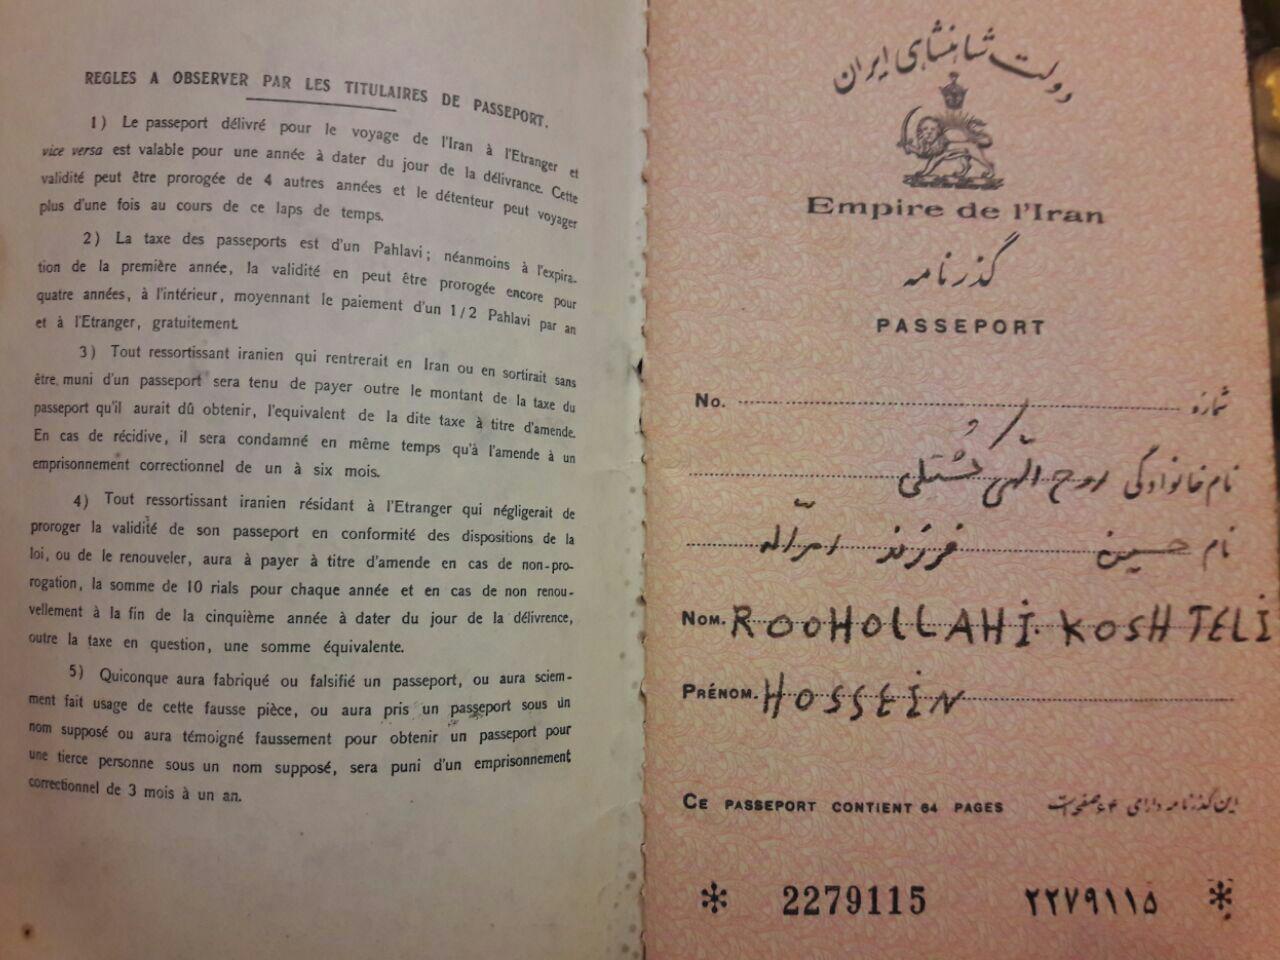 REGLES A OBSERVER PAR LES TITULAIRES DE PASSEPORT.
1) Le passeport délivré pour le voyage de l'Iran à l'Etranger et
vice versa est valable pour une année à dater du jour de la délivrance. Cette
validité peut être prorogée de 4 autres années et le détenteur peut voyager
plus d'une fois au cours de ce laps de temps.
2) La taxe des passeports est d'un Pahlavi; néanmoins à l'expira-
tion de la première année, la validité en peut être prorogée encore pour
quatre années, à l'intérieur, moyennant le paiement d'un 1/2 Pahlavi par an
et à l'Etranger, gratuitement.
3) Tout ressortissant iranien qui rentrerait en Iran ou en sortirait sans
être muni d'un passeport sera tenu de payer outre le montant de la taxe du
passeport qu'il aurait dû obtenir, l'equivalent de la dite taxe à titre d'amende.
En cas de récidive, il sera condamné en même temps qu'à l'amende à un
emprisonnement correctionnel de un à six mois.
4) Tout ressortissant iranien résidant à l'Etranger qui négligerait de
proroger la validité de son passeport en conformité des dispositions de la
loi, ou de le renouveler, aura à payer à titre d'amende en cas de non-pro-
rogation, la somme de 10 rials pour chaque année et en cas de non renou-
vellement à la fin de la cinquième année à dater du jour de la délivrence,
outre la taxe en question, une somme équivalente.
5) Quiconque aura fabriqué ou falsifié un passeport, ou aura sciem-
ment fait usage de cette fausse pièce, ou aura pris un passeport sous un
nom supposé ou aura témoigné faussement pour obtenir un passeport pour
une tierce personne sous un nom supposé, sera puni d'un emprisonnement
correctionnel de 3 mois à un an.
دولت شاهنشاهی ایران
Empire de l'Iran
گذرنامه
PASSEPORT
No. شماره
نام خانوادگی روح الهی کشتلی
نام حسین فرزند امراله
NOM. ROOHOLLAHI KOSHTELI
PRÉNOM. HOSSEIN
CE PASSEPORT CONTIENT 64 PAGES این گذرنامه دارای ۶۴ صفحه است
* 2279115 ۲۲۷۹۱۱۵ *